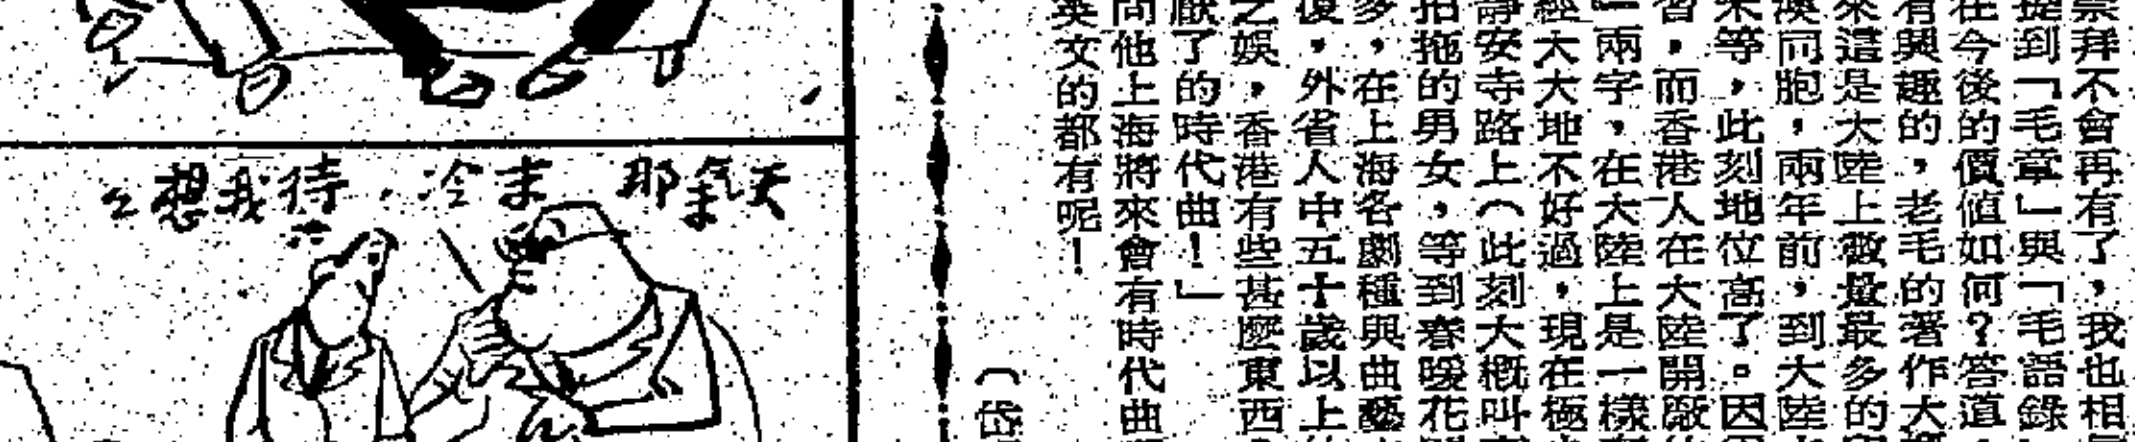 崇拜不會再有了，我也相
提到「毛章」與「毛語錄
在今後的價值如何？答道
有興趣的，老毛的著作大
來這是大陸上最最多的
同胞，兩年前，到大陸
等，此刻地位高了。因
，而香港人在大陸開廠
」兩字，在大陸上是一樣
經大大地不好過，現在極
靜安寺路上（此刻大概叫
拍拖的男女，等到春暖花
多，在上海各劇種與曲藝
復，外省人中五十歲以上
之娛，香港有些甚麼東西
厭了的時代曲！」
問他上海將來會有時代曲
英文的都有呢！
（岱
天氣那末冷，待我想